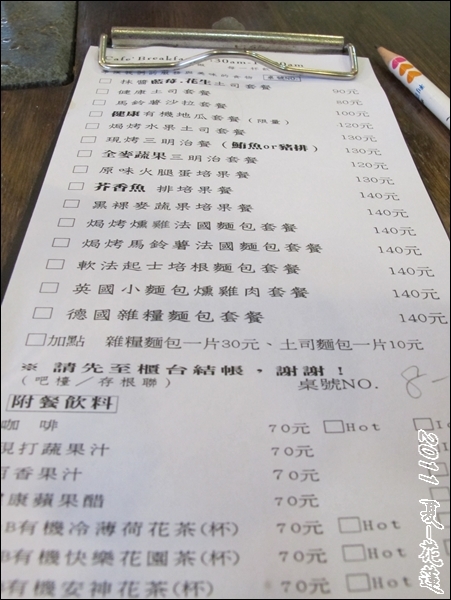 Cafe' Breakfa
抹醬藍莓.花生土司套餐
健康土司套餐 90元
馬鈴薯沙拉套餐 80元
健康有機地瓜套餐(限量) 100元
焗烤水果土司套餐 120元
現烤三明治餐(鮪魚or豬排) 130元
全麥蔬果三明治套餐 120元
原味火腿蛋培果餐 130元
芥香魚 排培果餐 140元
黑裸麥蔬果培果餐 140元
焗烤燻雞法國麵包套餐 140元
焗烤馬鈴薯法國麵包套餐 140元
軟法起士培根麵包套餐 140元
英國小麵包燻雞肉套餐 140元
德國雜糧麵包套餐 140元
加點 雜糧麵包一片30元、土司麵包一片10元
※ 請先至櫃台結帳,謝謝!
(吧檯/存根聯) 桌號NO. 8-
附餐飲料
咖啡 70元 Hot
現打蔬果汁 70元
百香果汁 70元
健康蘋果醋 70元
B有機冷薄荷花茶(杯) 70元 Hot
B有機快樂花園茶(杯) 70元 Hot
B有機安神花茶(杯) 70元 Hot
2011